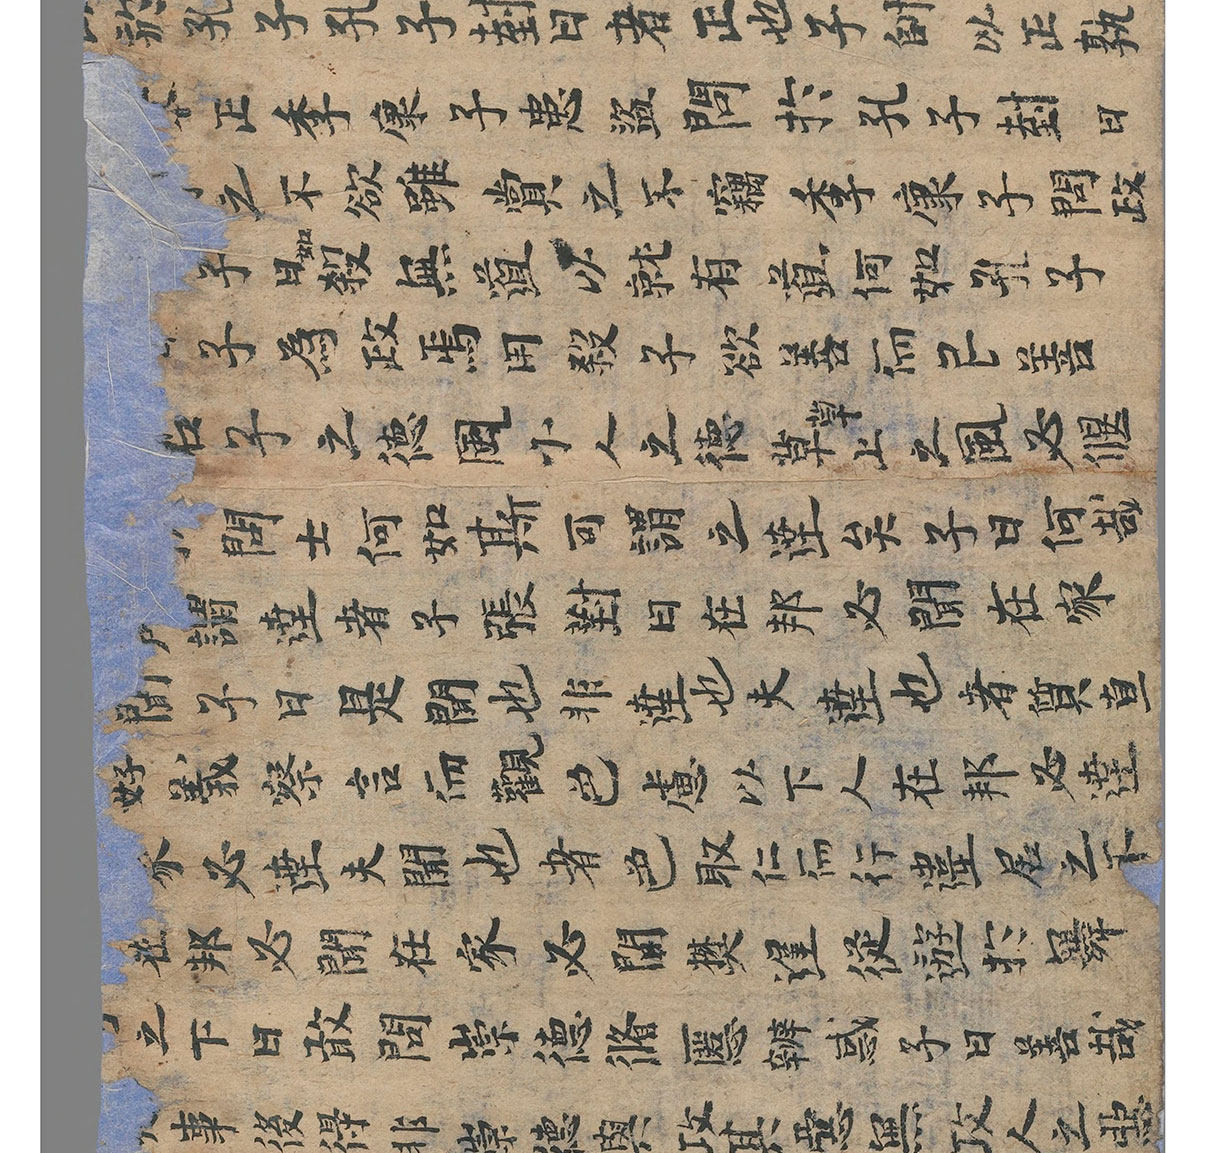 於孔子孔子對曰者正也子帥以正孰
正季康子患盜問扵孔子對曰
之不欲雖賞之不竊季康子問政
子曰如殺無道以就有道何如孔子
子為政焉用殺子欲善而已善
子之德風小人之德草草上之風必偃
問士何如斯可謂之達矣子曰何哉
謂達者子張對曰在邦必聞在家
聞子曰是聞也非達也夫達也者質直
好義察言而觀色慮以下人在邦必達
家必達夫聞也者色取仁而行違居之不
在邦必聞在家必聞樊遲從遊扵舞
之下曰敢問崇德脩慝辨惑子曰善哉
事後得非崇德與攻其惡無攻人之惡